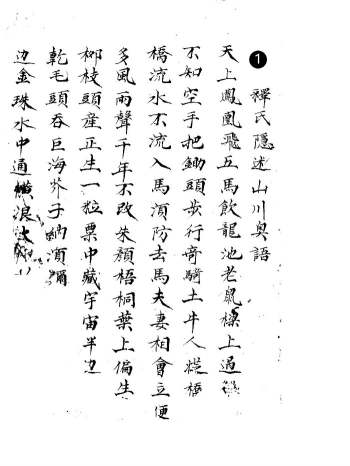 ❶ 禪氏隱述山川奧語
天上鳳凰飛五馬飲龍池老鼠樑上過
不知空手把鋤頭步行竒騎土牛人從橋
橋流水不流入馬湏防去馬夫妻相會立便
多風雨聲千年不改朱顏梧桐葉上偏生
柳枝頭産正生一粒粟中藏宇宙半边
乾毛頭吞巨海芥子納湏彌
边金珠水中通浪